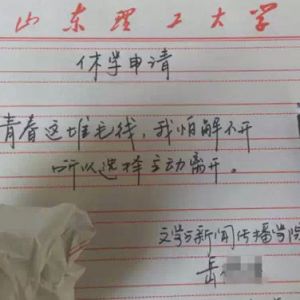 山东理工大学
休学申请
青春这堆毛线，我怕解不开
所以选择主动离开。
文学与新闻传播学院
岳